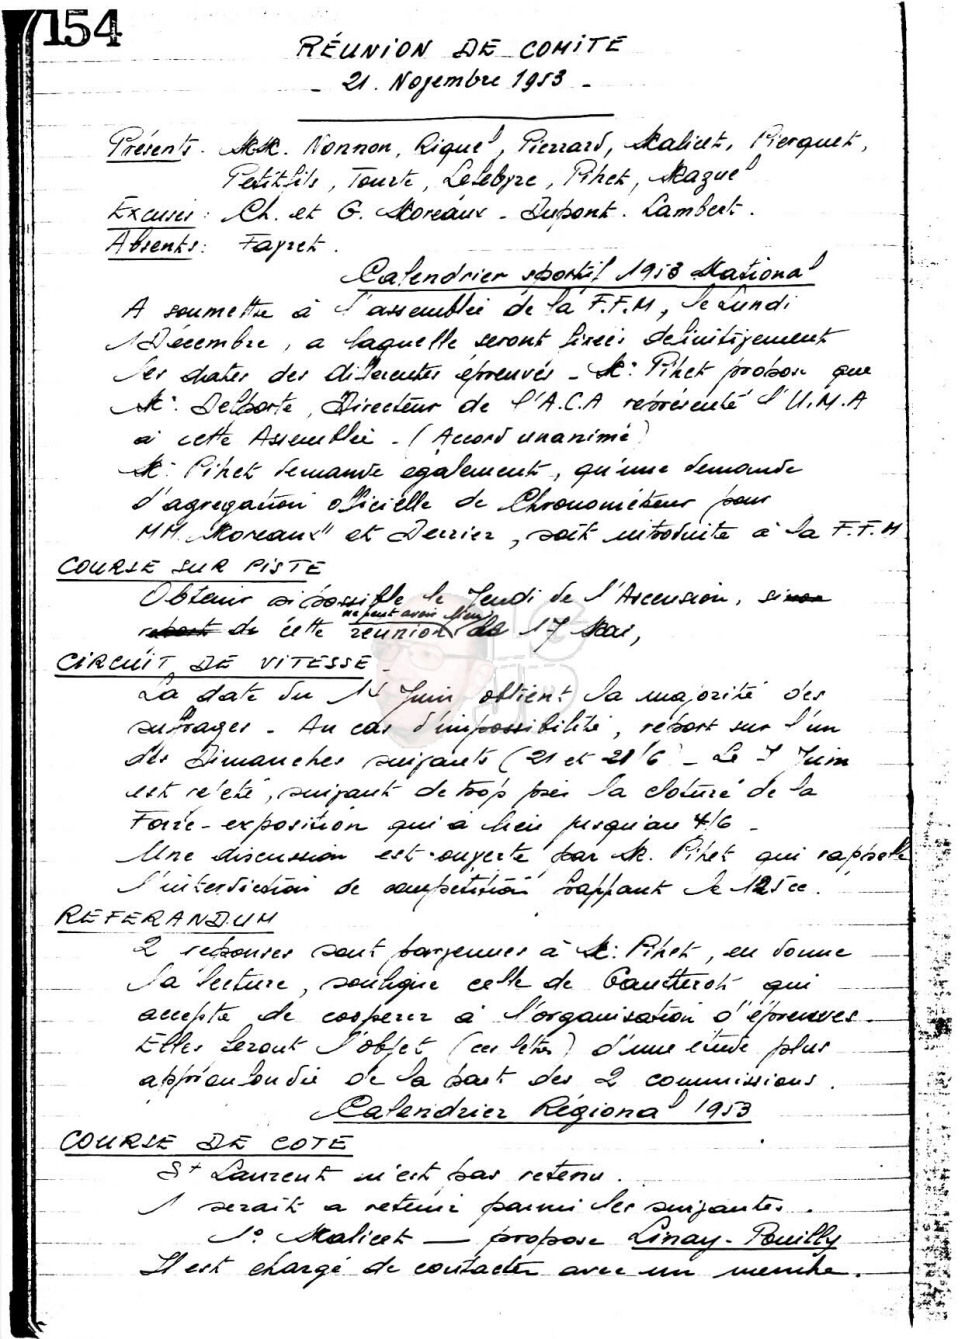 154
RÉUNION DE COMITE
- 21. Novembre 1953 -
Présents. MM. Nonnon, Riguel, Pierrard, Malicet, Pierquet,
Petitfils, Tourte, Lefebvre, Pihet, Mazuel
Excusés : Ch. et G. Moreaux - Dupont. Lambert.
Absents : Fayret.
Calendrier sportif 1953 National
A soumettre à l'assemblée de la F.F.M, le Lundi
1 Décembre, a laquelle seront fixées definitivement
les dates des differentes épreuves - M: Pihet propose que
M: Delporte, Directeur de l'A.C.A représenté l'U.M.A
à cette Assemblée - (Accord unanime)
M: Pihet demande également, qu'une demande
d'agregation officielle de Chronométreur pour
MM. Moreaux et Derrier, soit introduite à la F.F.M
COURSE SUR PISTE
Obtenir si possible le Jeudi de l'Ascension, sinon
ne peut avoir lieu
report de cette réunion le 17 Mai,
CIRCUIT DE VITESSE -
La date du 14 Juin obtient la majorité des
suffrages - Au cas d'impossibilité, report sur l'un
des Dimanches suivants (21 et 28/6 - Le 7 Juin
est rejeté, suivant de trop près la cloture de la
Foire-exposition qui a lieu jusqu'au 4/6 -
Une discussion est ouverte par M. Pihet qui rappelle
l'interdiction de compétition frappant le 125cc.
REFERANDUM
2 réponses sont parvenues à M: Pihet, en donne
la lecture, souligne celle de Gautherot qui
accepte de coopérer à l'organisation d'épreuves.
Elles feront l'objet (ces lettres) d'une étude plus
approfondie de la part des 2 commissions.
Calendrier Régional 1953
COURSE DE COTE
St Laurent n'est pas retenu.
1 serait a retenir parmi les suivantes.
1° Malicet — propose Linay-Pouilly
Il est chargé de contacter avec un membre.